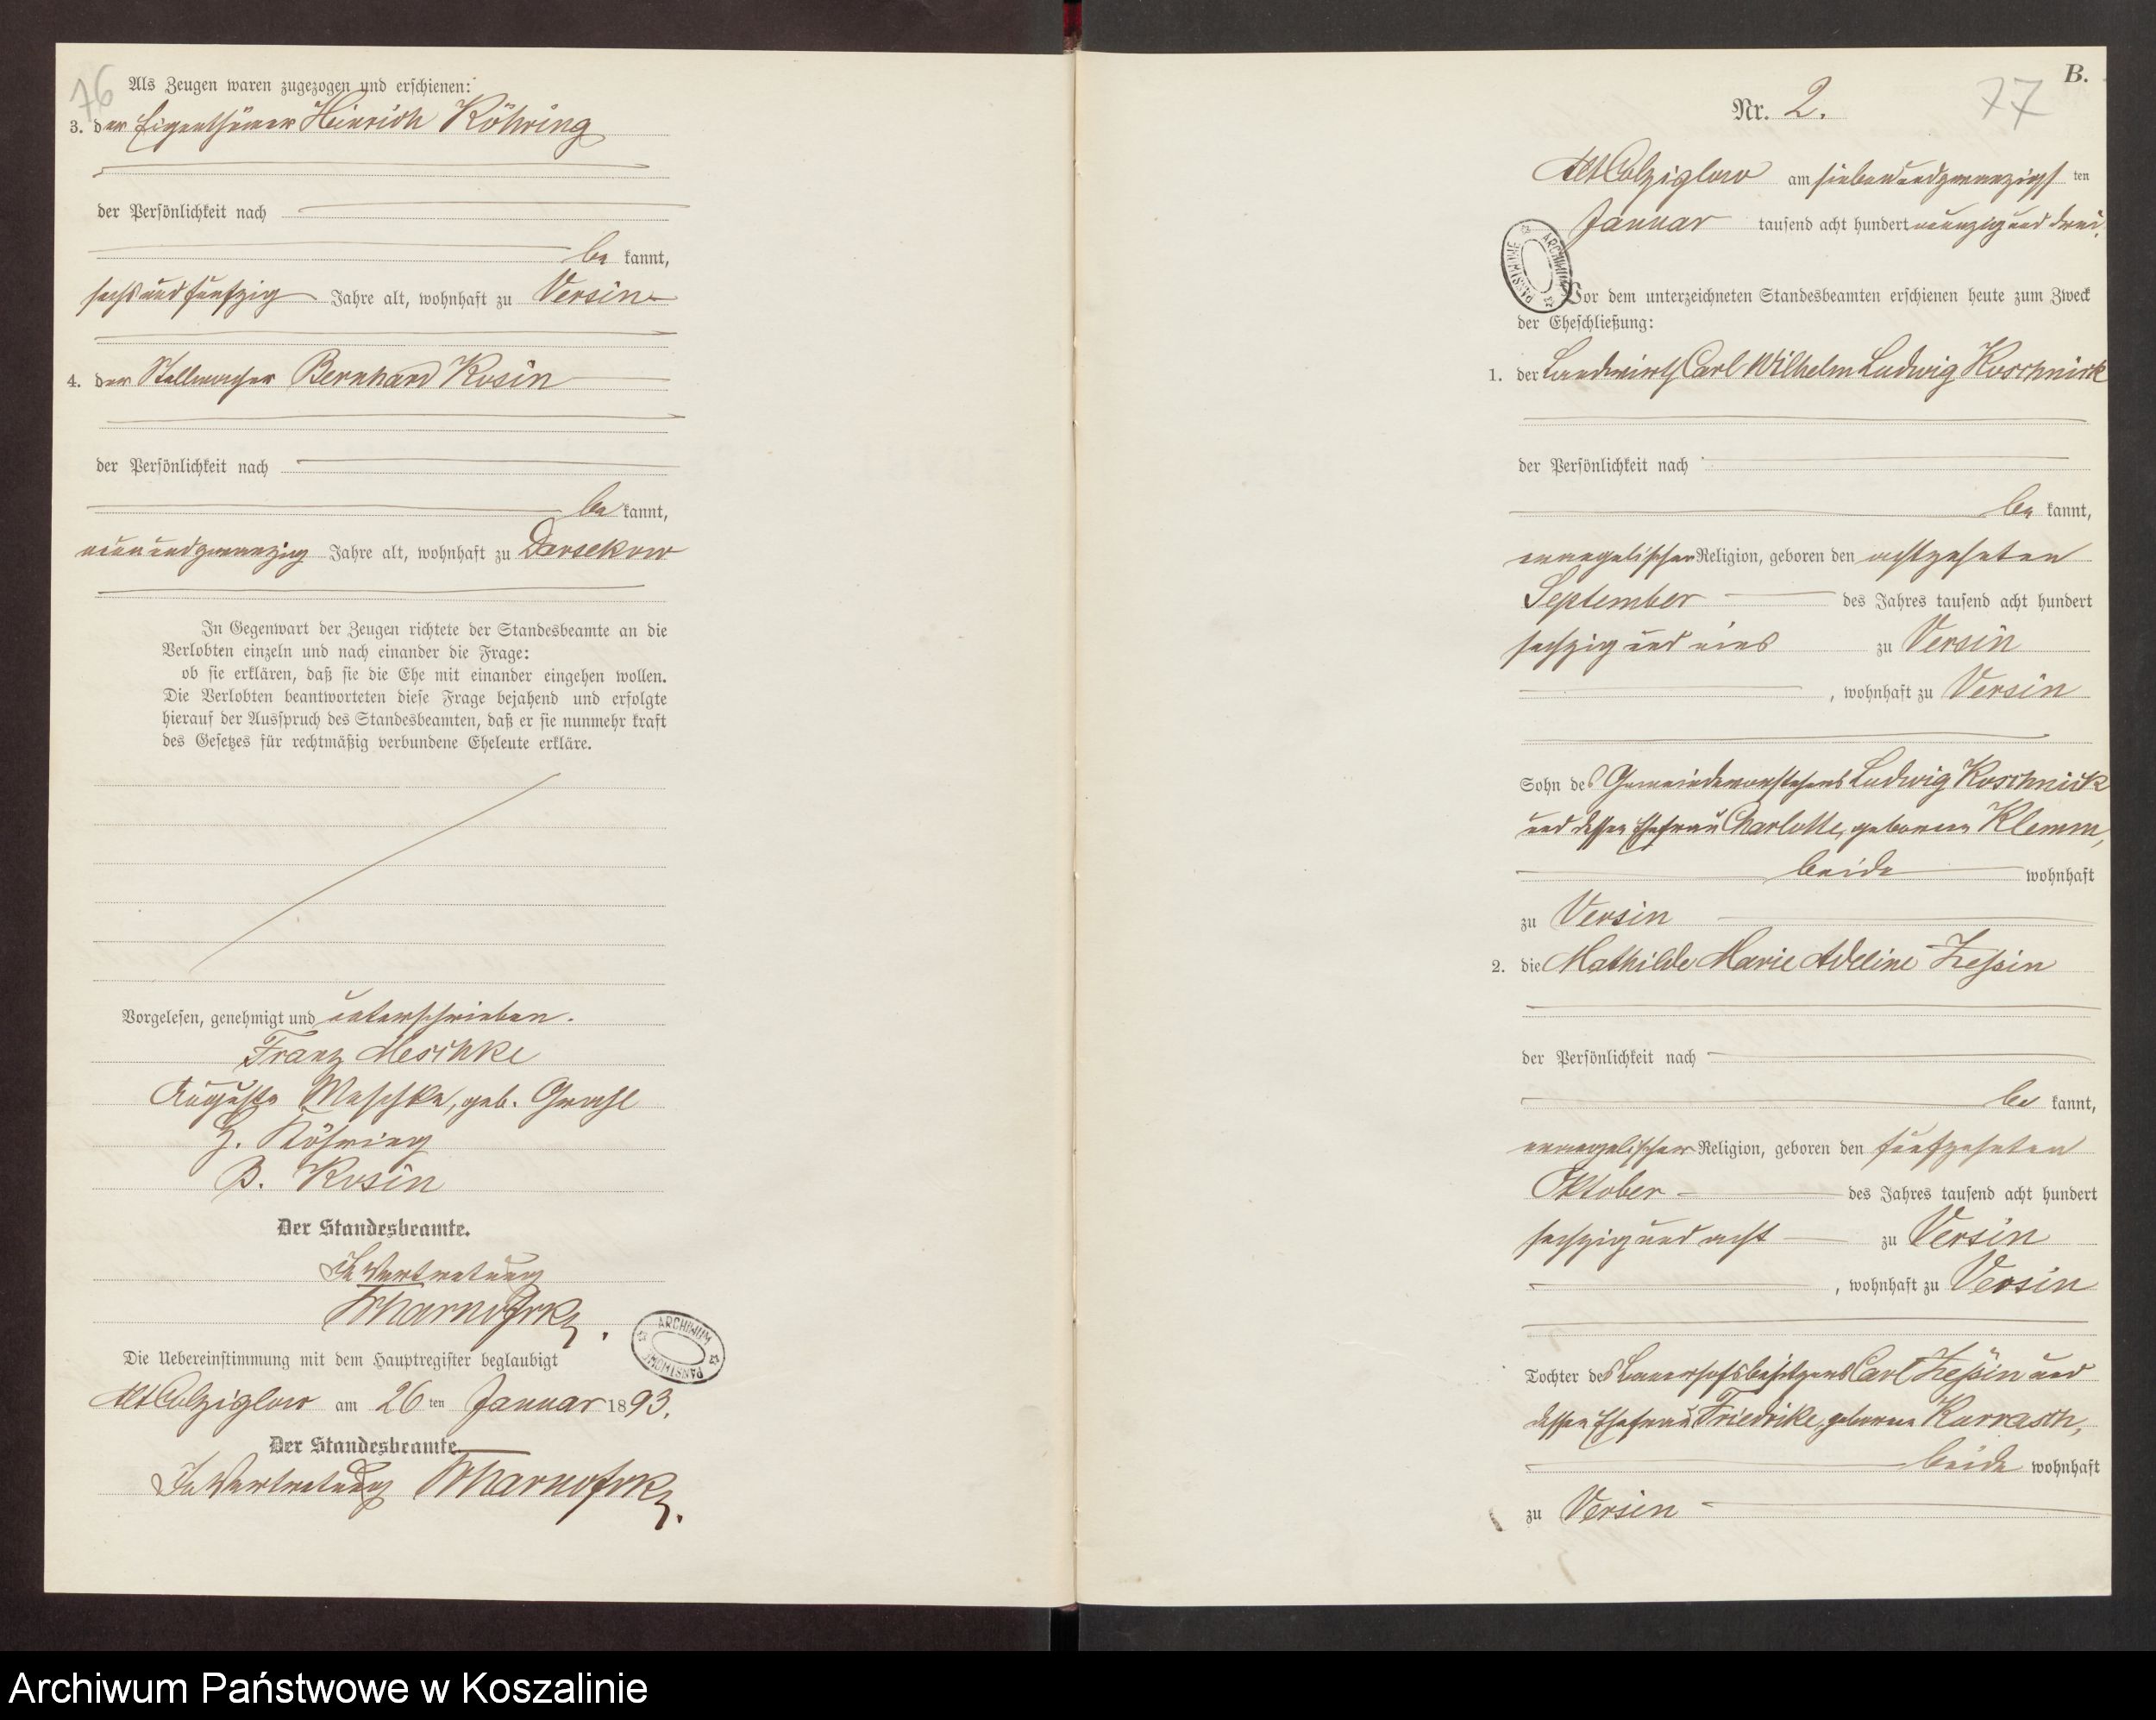 76
Als Zeugen waren zugezogen und erschienen:
3. der Eigenthümer Heinrich Röhring
der Persönlichkeit nach
be kannt,
sechsundfünfzig Jahre alt, wohnhaft zu Versin
4. der Stellmacher Bernhard Kosin
der Persönlichkeit nach
be kannt,
neunundzwanzig Jahre alt, wohnhaft zu Darsekow
In Gegenwart der Zeugen richtete der Standesbeamte an die
Verlobten einzeln und nach einander die Frage:
ob sie erklären, daß sie die Ehe mit einander eingehen wollen.
Die Verlobten beantworteten diese Frage bejahend und erfolgte
hierauf der Ausspruch des Standesbeamten, daß er sie nunmehr kraft
des Gesetzes für rechtmäßig verbundene Eheleute erkläre.
Vorgelesen, genehmigt und unterschrieben.
Franz Meschke
Auguste Meschke, geb. Grahl
H. Röhring
B. Kosin
Der Standesbeamte.
In Vertretung
ARCHIWUM PAŃSTWOWE
Die Uebereinstimmung mit dem Hauptregister beglaubigt
Alt Colziglow am 26 ten Januar 1893.
Der Standesbeamte
In Vertretung
B.
77
Nr. 2.
Alt Colziglow am siebenundzwanzigs ten
Januar tausend acht hundert neunzig und drei.
ARCHIWUM PAŃSTWOWE
Vor dem unterzeichneten Standesbeamten erschienen heute zum Zweck
der Eheschließung:
1. der Landwirth Carl Wilhelm Ludwig Koschnick
der Persönlichkeit nach
be kannt,
evangelischer Religion, geboren den achtzehnten
September des Jahres tausend acht hundert
sechzig und eins zu Versin
, wohnhaft zu Versin
Sohn des Gemeindevorstehers Ludwig Koschnick
und dessen Ehefrau Charlotte, geborene Klemm,
beide wohnhaft
zu Versin
2. die Mathilde Marie Adeline Zessin
der Persönlichkeit nach
be kannt,
evangelischer Religion, geboren den fünfzehnten
Oktober des Jahres tausend acht hundert
sechzig und acht zu Versin
, wohnhaft zu Versin
Tochter des Bauerhofsbesitzers Carl Zessin und
dessen Ehefrau Friedrike, geborene Karrasch,
beide wohnhaft
zu Versin
Archiwum Państwowe w Koszalinie